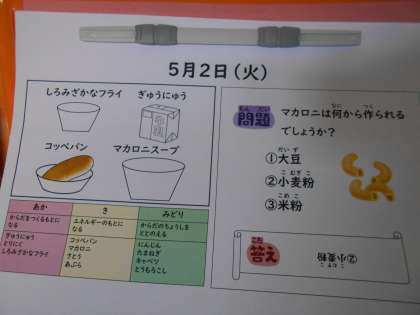 5月2日(火)
しろみざかなフライ
ぎゅうにゅう
牛乳
コッペパン
マカロニスープ
あか
き
みどり
からだをつくるもとになる
エネルギーのもとになる
からだのちょうしをととのえる
ぎゅうにゅう
とりにく
しろみざかなフライ
コッペパン
マカロニ
さとう
あぶら
にんじん
たまねぎ
キャベツ
とうもろこし
もんだい
問題
なに
つく
マカロニは何から作られる
でしょうか?
だいず
①大豆
こむぎこ
②小麦粉
こめこ
③米粉
こた
答え
②小麦粉
こむぎこ